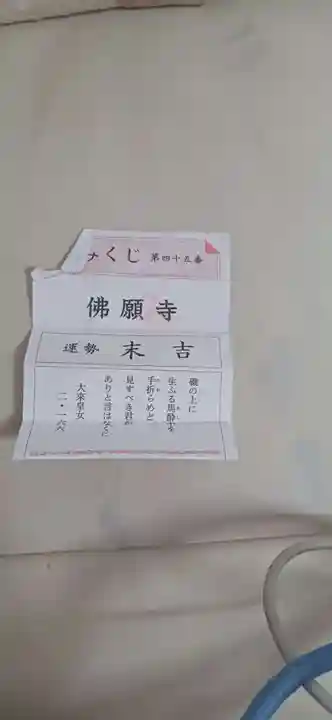 みくじ 第四十五番
佛願寺
運勢 末吉
磯の上に
生ふる馬酔木を
手折らめど
見すべき君が
ありと言はなくに
大来皇女
二・一六六